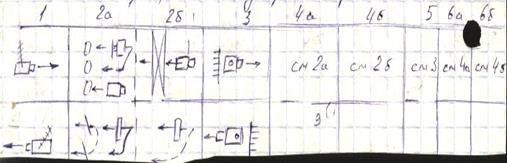 1 2а 2б 3 4а 4б 5 6а 6б
см 2а см 2б см 3 см 4а см 4б
3